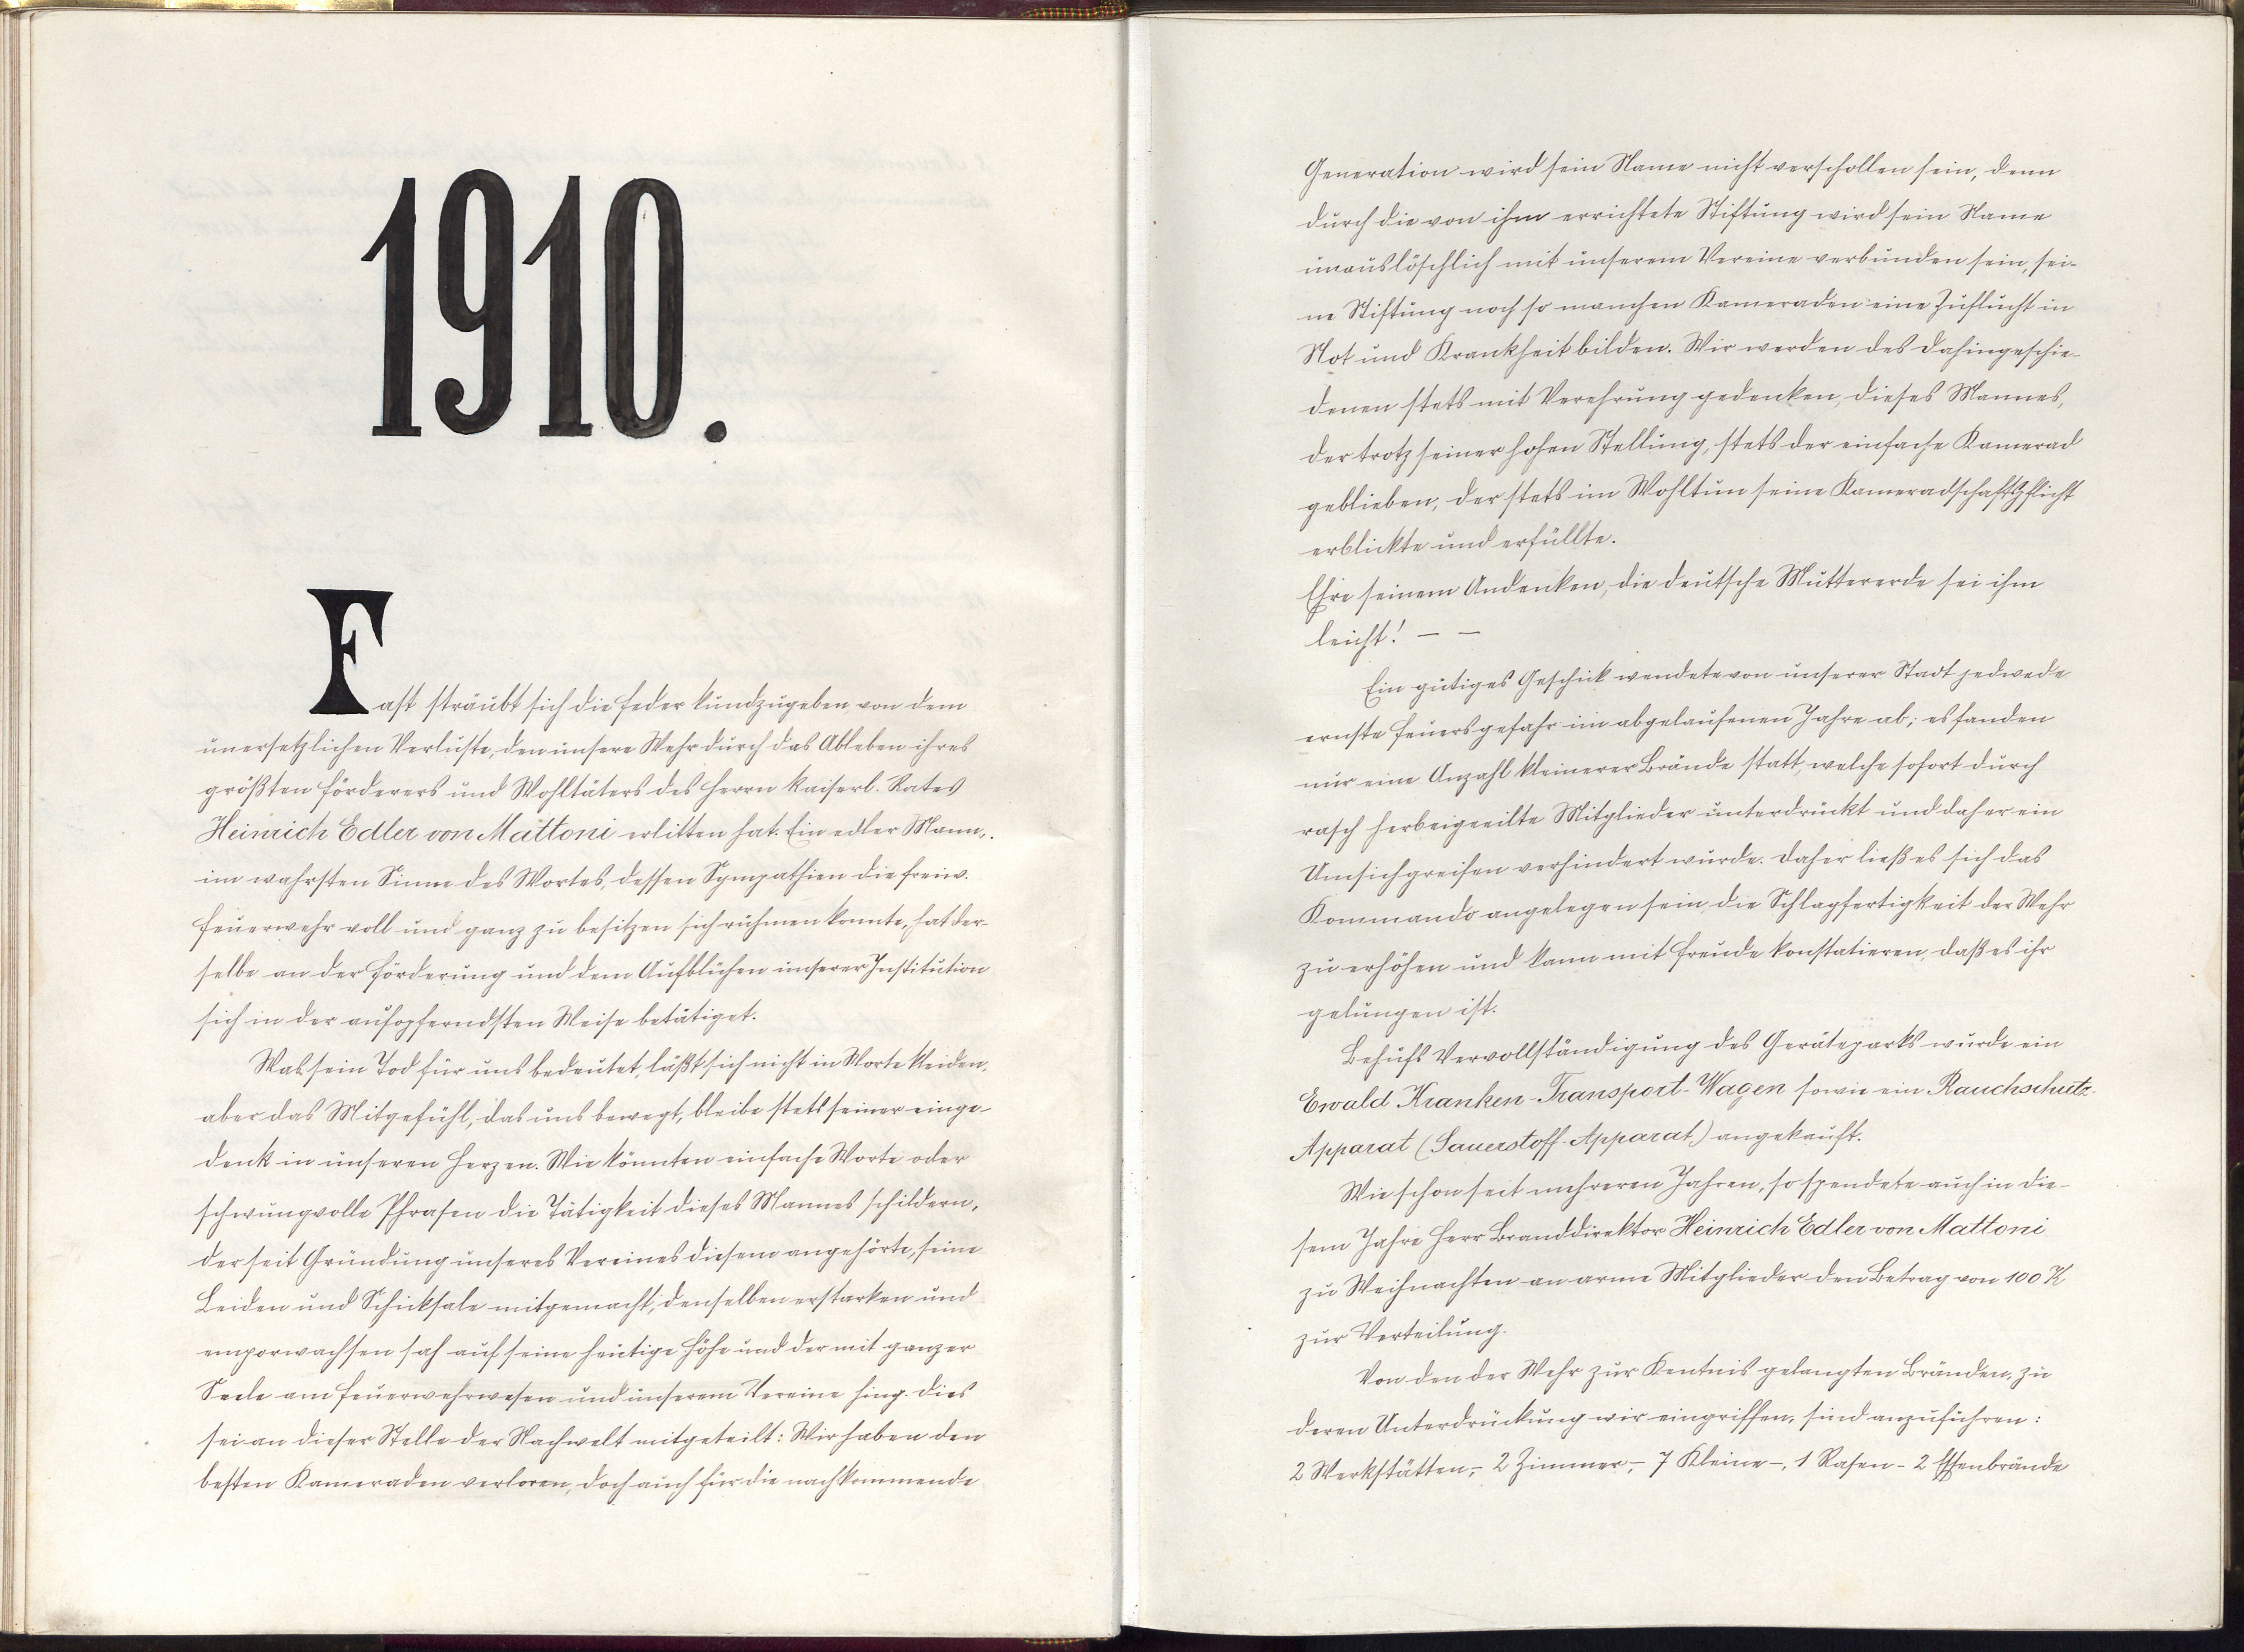 1910.
Fast sträubt sich die Feder kundzugeben, von dem
unersetzlichen Verluste, den unsere Wehr durch das Ableben ihres
größten Förderers und Wohltäters des Herrn kaiserl. Rates
Heinrich Edler von Mattoni erlitten hat. Ein edler Mann,.
im wahrsten Sinne des Wortes, dessen Sympathien die freiw.
Feuerwehr voll und ganz zu besitzen sich rühmen konnte, hat der-
selbe an der Förderung und dem Aufblühen unserer Institution
sich in der aufopferndsten Weise betätiget.
Was sein Tod für uns bedeutet, läßt sich nicht in Worte kleiden,
aber das Mitgefühl, das uns bewegt, bleibe stets seiner einge-
denk in unseren Herzen. Wie könnten einfache Worte oder
schwungvolle Phrasen die Tätigkeit dieses Mannes schildern,
der seit Gründung unseres Vereines diesem angehörte, seine
Leiden und Schicksale mitgemacht, denselben erstarken und
emporwachsen sah auf seine heutige Höhe und der mit ganzer
Seele am Feuerwehrwesen und unserem Vereine hing. Dies
sei an dieser Stelle der Nachwelt mitgeteilt: Wir haben den
besten Kameraden verloren, doch auch für die nachkommende
Generation wird sein Name nicht verschollen sein, denn
durch die von ihm errichtete Stiftung wird sein Name
unauslöschlich mit unserem Vereine verbunden sein, sei-
ne Stiftung noch so manchen Kameraden eine Zuflucht in
Not und Krankheit bilden. Wir werden des Dahingeschie-
denen stets mit Verehrung gedenken, dieses Mannes,
der trotz seiner hohen Stellung, stets der einfache Kamerad
geblieben, der stets im Wohltun seine Kameradschaftspflicht
erblickte und erfüllte.
Ehre seinem Andenken, die deutsche Muttererde sei ihm
leicht! — —
Ein gütiges Geschick wendete von unserer Stadt jedwede
ernste Feuersgefahr im abgelaufenen Jahre ab; es fanden
nur eine Anzahl kleinerer Brände statt, welche sofort durch
rasch herbeigeeilte Mitglieder unterdrückt und daher ein
Umsichgreifen verhindert wurde. Daher ließ es sich das
Kommando angelegen sein, die Schlagfertigkeit der Wehr
zu erhöhen und kann mit Freude konstatieren, daß es ihr
gelungen ist.
Behufs Vervollständigung des Geräteparks wurde ein
Ewald Kranken-Transport-Wagen sowie ein Rauchschutz-
Apparat (Sauerstoff-Apparat) angekauft.
Wie schon seit mehreren Jahren, so spendete auch in die-
sem Jahre Herr Branddirektor Heinrich Edler von Mattoni
zu Weihnachten an arme Mitglieder den Betrag von 100 K
zur Verteilung.
Von den der Wehr zur Kentnis gelangten Bränden, zu
deren Unterdrückung wir eingriffen, sind anzuführen:
2 Werkstätten-, 2 Zimmer-, 7 Kleine-, 1 Rasen- 2 Essenbrände